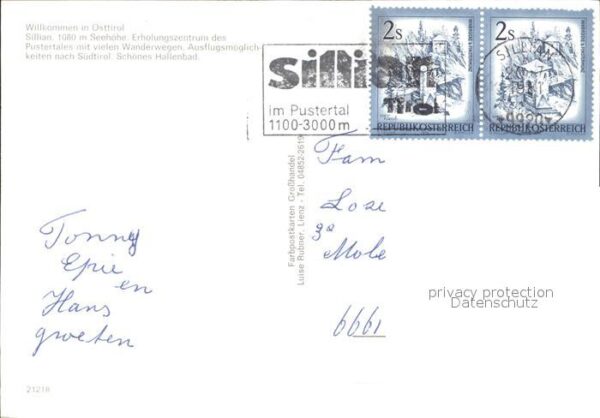 Willkommen in Osttirol
Sillian, 1080 m Seehöhe. Erholungszentrum des
Pustertales mit vielen Wanderwegen. Ausflugsmöglich-
keiten nach Südtirol. Schönes Hallenbad.
Sillian
Tirol
im Pustertal
1100-3000 m
2s
REPUBLIK ÖSTERREICH
2s
REPUBLIK ÖSTERREICH
SILLIAN
9920
Farbpostkarten Großhandel
Luise Rubner, Lienz - Tel. 04852-2619
Fam
Loze
Mole
6661
Tonny
Epie
en
Hans
groeten
privacy protection
Datenschutz
21218